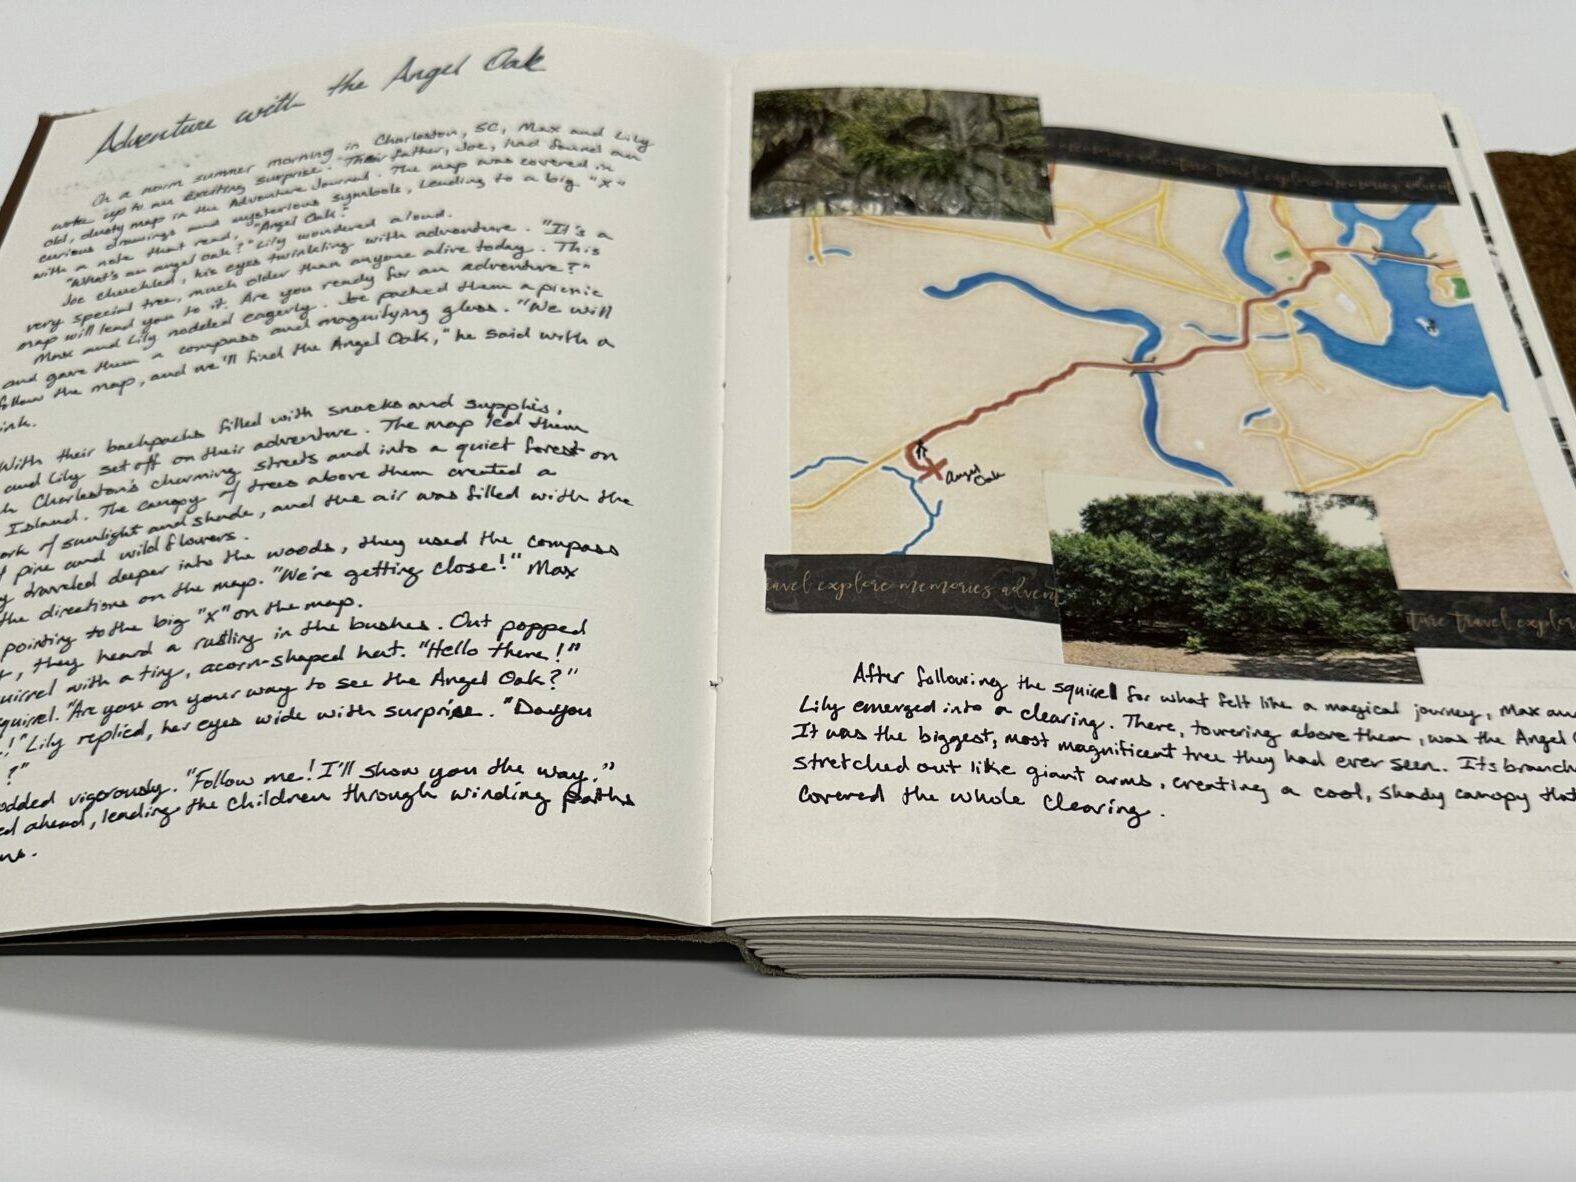 Adventure with the Angel Oak
On a warm summer morning in Charleston, SC, Max and Lily
woke up to an exciting surprise. Their father, Joe, had found an
old, dusty map in the Adventure Journal. The map was covered in
curious drawings and mysterious symbols, leading to a big "X"
with a note that read, "Angel Oak."
"What's an angel oak?" Lily wondered aloud.
Joe chuckled, his eyes twinkling with adventure. "It's a
very special tree, much older than anyone alive today. This
map will lead you to it. Are you ready for an adventure?"
Max and Lily nodded eagerly. Joe packed them a picnic
and gave them a compass and magnifying glass. "We will
follow the map, and we'll find the Angel Oak," he said with a
ink.
With their backpacks filled with snacks and supplis,
and Lily set off on their adventure. The map led them
h Charleston's charming streets and into a quiet forest on
Island. The canopy of trees above them created a
ork of sunlight and shade, and the air was filled with the
f pine and wildflowers.
y traveled deeper into the woods, they used the compass
the directions on the map. "We're getting close!" Max
pointing to the big "x" on the map.
t, they heard a rustling in the bushes. Out popped
quirrel with a tiny, acorn-shaped hat. "Hello there!"
quirrel. "Are you on your way to see the Angel Oak?"
!" Lily replied, her eyes wide with surprise. "Do you
?"
odded vigorously. "Follow me! I'll show you the way."
ed ahead, leading the children through winding paths
ns.
memories adventure travel explore memories advent
Angel
Oak
travel explore memories advent
ture travel explor
After following the squirell for what felt like a magical journey, Max an
Lily emerged into a clearing. There, towering above them, was the Angel
It was the biggest, most magnificent tree they had ever seen. Its branch
stretched out like giant arms, creating a cool, shady canopy that
covered the whole clearing.